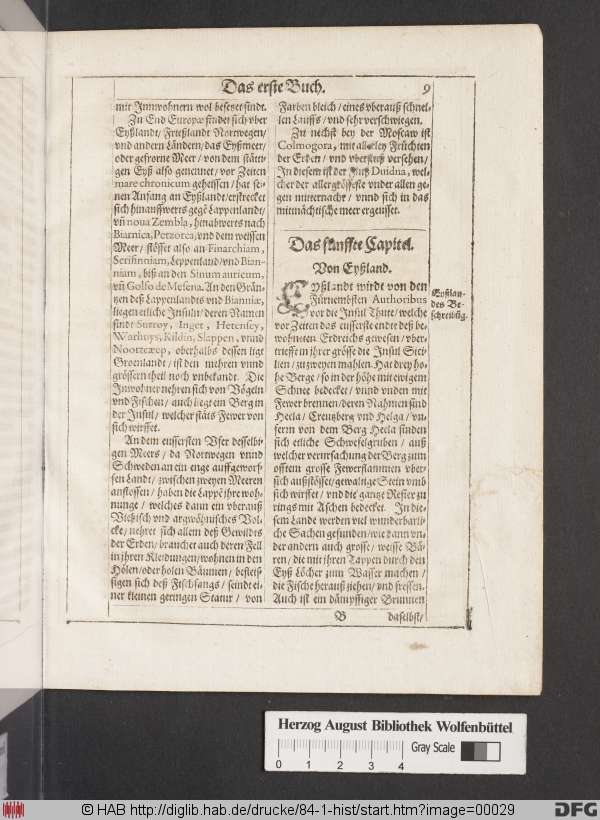 Das erste Buch. 9
mit Innwohnern wol besetzet sindt.
Zu End Europæ findet sich vber
Eyßlandt/ Frießlandt Norwegen/
vnd andern Ländern/ das Eyßmeer/
oder gefrorne Meer/ von dem stäti-
gen Eyß also genennet/ vor Zeiten
mare chronicum geheissen/ hat sei-
nen Anfang an Eyßlandt/ erstrecket
sich hinauffwerts gegē Lappenlandt/
vñ noua Zembla, hinabwerts nach
Biarnica, Petzorca, vnd dem weissen
Meer/ stösset also an Finarchiam,
Scrifinniam, Leppenland/ vnd Bian-
niam, biß an den Sinum auricum,
vñ Golfo de Mesena. An den Grän-
tzen deß Lappenlandts vnd Bianniæ,
liegen etliche Insuln/ deren Namen
sindt Surroy, Inget, Hetensey,
Warhuys, Kildin, Slappen, vnnd
Noortcæep, oberhalbs dessen ligt
Groenlandt/ ist den mehren vnnd
grössern theil noch vnbekandt. Die
Inwohner nehren sich von Vögeln
vnd Fischen/ auch liegt ein Berg in
der Insul/ welcher stäts Fewer von
sich wirffet.
An dem eussersten Vfer desselbi-
gen Meers/ da Norwegen vnnd
Schweden an ein enge auffgeworf-
fen Landt/ zwischen zweyen Meeren
anstossen/ haben die Lappē ihre woh-
nunge/ welches dann ein vberauß
Viehisch vnd argwöhnisches Vol-
cke/ nehret sich allem deß Gewildts
der Erden/ brauchet auch deren Fell
in jhren Kleidungen/ wohnen in den
Hölen/ oder holen Bäumen/ befleis-
sigen sich deß Fischfangs/ seindt ei-
ner kleinen geringen Statur/ von
Farben bleich/ eines vberauß schnel-
len Lauffs/ vnd sehr verschwiegen.
Zu nechst bey der Moscaw ist
Colmogora, mit allerley Früchten
der Erden/ vnd vberfluß versehen/
In diesem ist der Fluß Duidna, wel-
cher der allergrösseste vnder allen ge-
gen mitternacht/ vnnd sich in das
mitnächtische meer ergeusset.
Das fünffte Capitel.
Von Eyßland.
Eyßlandt wirdt von den
Fürnembsten Authoribus
vor die Insul Thule/ welche
vor Zeiten das eusserste ende deß be-
wohnten Erdreichs gewesen/ vber-
trieffe in jhrer grösse die Insul Sici-
lien/ zu zweyen mahlen. Hat drey ho-
he Berge/ so in der höhe mit ewigem
Schnee bedecket/ vnnd vnden mit
Fewer brennen/ deren Nahmen sind
Hecla/ Creutzberg vnd Helga/ vn-
fern von dem Berg Hecla finden
sich etliche Schwefelgruben/ auß
welcher verursachung der Berg zum
offtern grosse Fewerflammen vber
sich außstösset/ gewaltige Stein vmb
sich wirffet/ vnd die gantze Refier zu
rings mit Aschen bedecket. In die-
sem Lande werden viel wunderbarli-
che Sachen gefunden/ wie dann vn-
der andern auch grosse/ weisse Bä-
ren/ die mit jhren Tappen durch den
Eyß Löcher zum Wasser machen/
die Fische herauß ziehen/ vnd fressen.
Auch ist ein dämpffiger Brunnen
Eyßlan-
des Be-
schreibūg.
B daselbst/
Herzog August Bibliothek Wolfenbüttel
0 1 2 3 4 Gray Scale
© HAB http://diglib.hab.de/drucke/84-1-hist/start.htm?image=00029
DFG